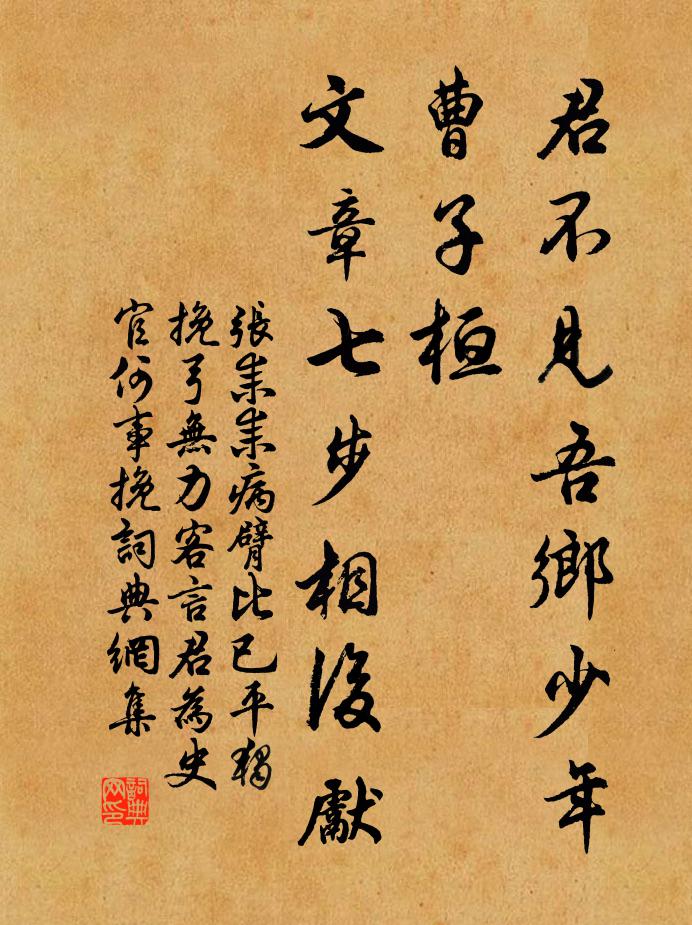 君不見吾鄉少年
曹子桓
文章七步相後獻
張耒耒病臂比已平獨
挽弓無力客言君為史
官何事挽詞典網集
詞典網印